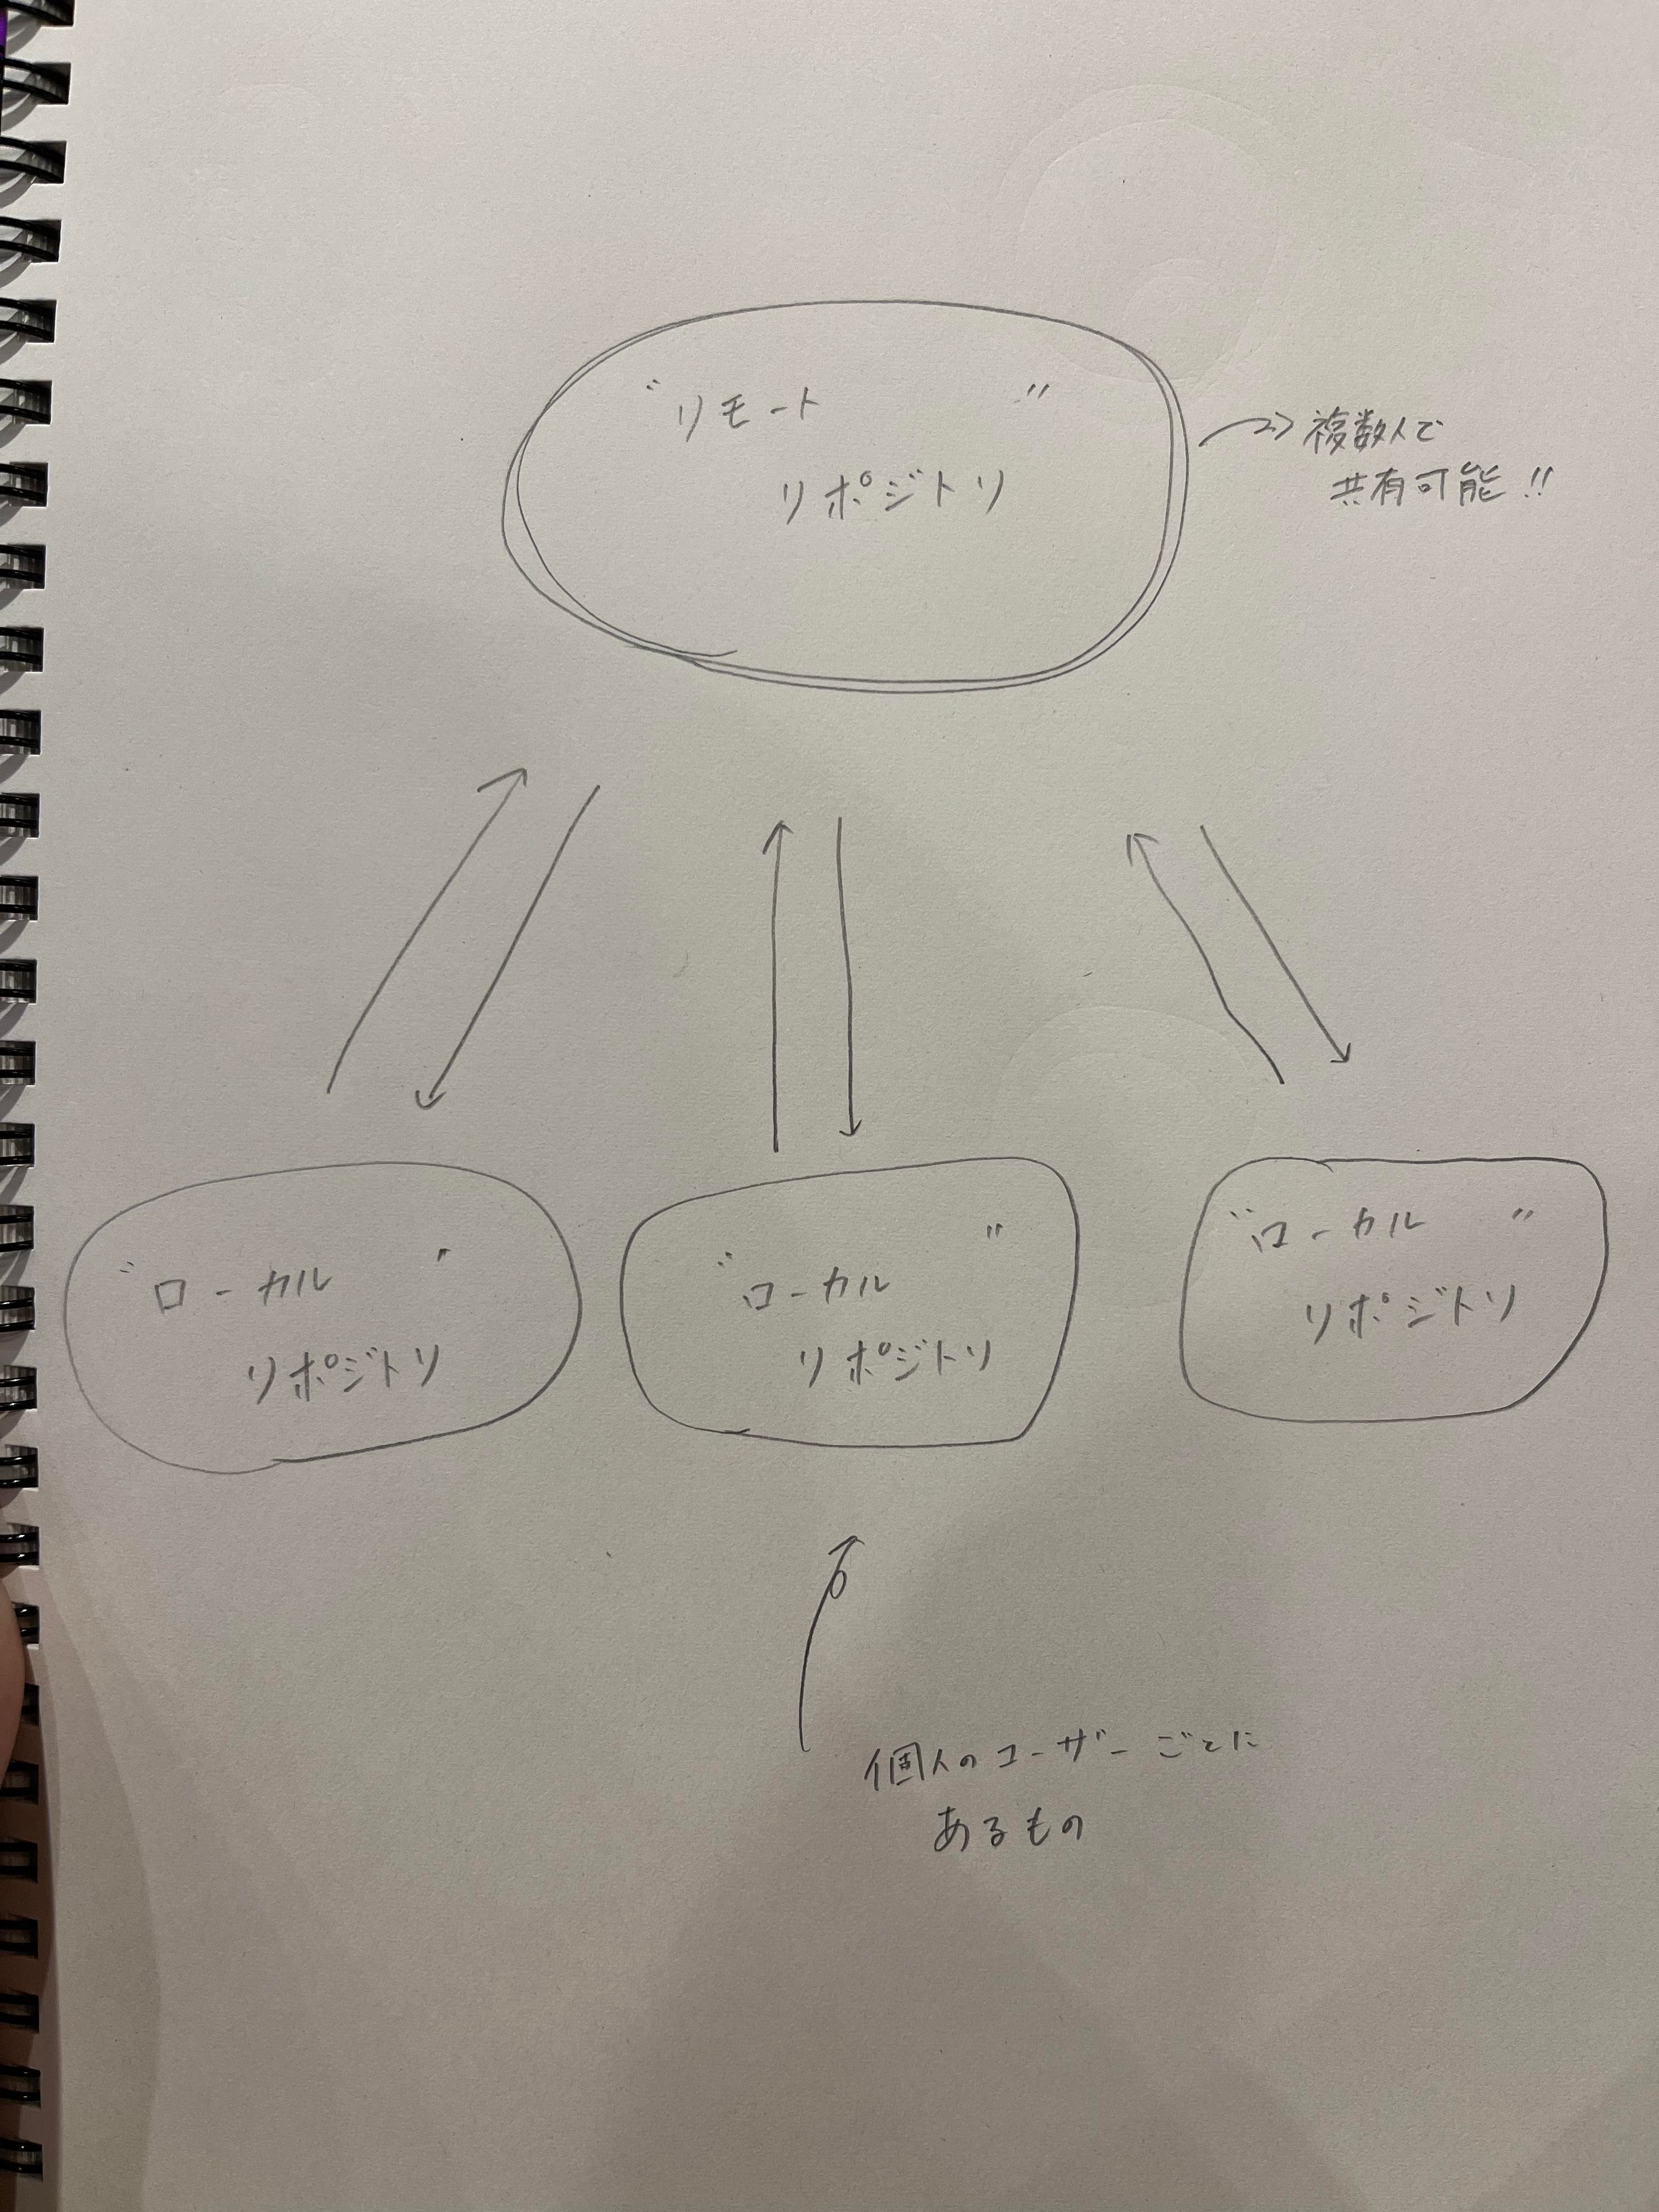 "リモート "
リポジトリ
→ 複数人で
共有可能!!
"ローカル "
リポジトリ
"ローカル "
リポジトリ
"ローカル "
リポジトリ
個人のユーザーごとに
あるもの